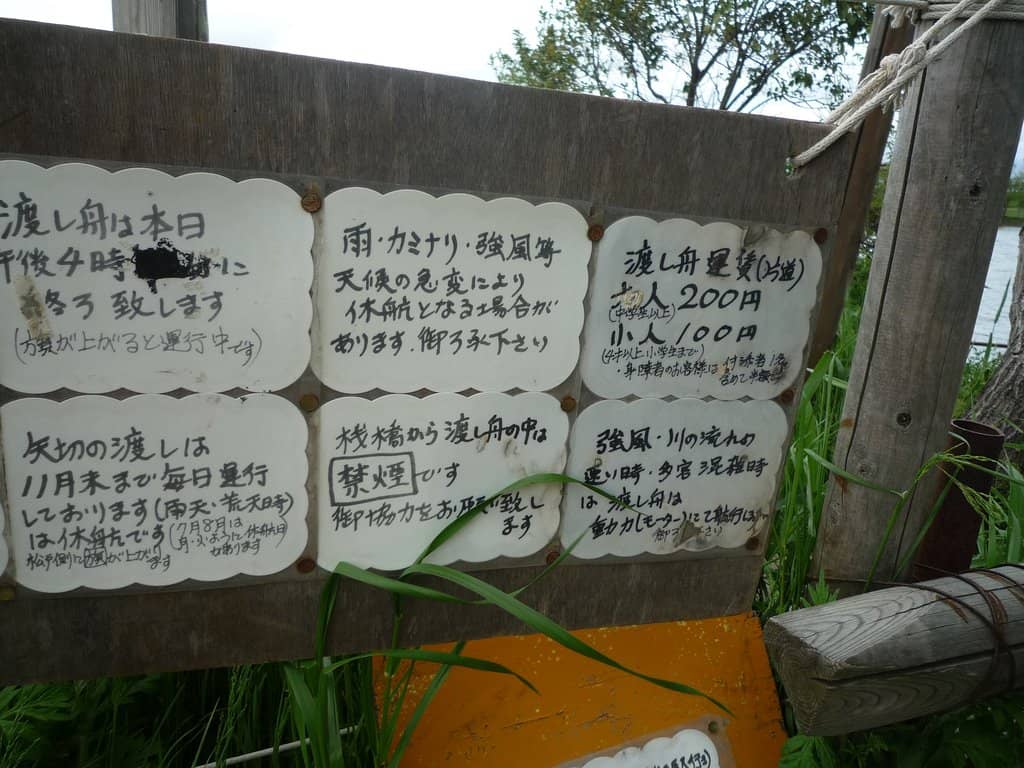 渡し舟は本日
午後4時
終了致します
(旗が上がると運行中です)
雨・カミナリ・強風等
天候の急変により
休航となる場合が
あります.御了承下さい
渡し舟運賃(片道)
大人200円
(中学生以上)
小人100円
(4才以上小学生まで)
・身障者のお客様は 付添者1名
含めて半額
矢切の渡しは
11月末まで毎日運行
しております(雨天・荒天時)
は休航です
(7月8月は
休航日
もあります
松戸側にて旗が上がります
桟橋から渡し舟の中は
禁煙です
御協力をお願い致し
ます
強風・川の流れの
速い時・多客混雑時
は渡し舟は
動力(モーター)にて航行